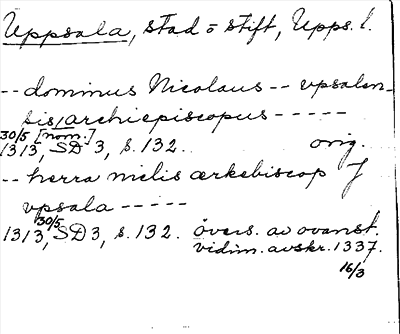 Uppsala, stad o stift, Upps. l.
-- dominus Nicolaus -- vpsalen-
sis/archiepiscopus -----
30/5 [nom.]
1313, SD 3, s. 132. orig.
-- herra nielis ærkebiscop J
vpsala -----
30/5
1313, SD 3, s. 132. övers. av ovanst.
vidim. avskr. 1337.
16/3